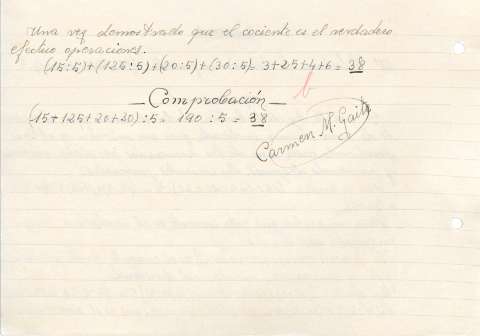 Una vez demostrado que el cociente es el verdadero
efectuo operaciones.
(15:5)+(125:5)+(20:5)+(30:5)= 3+25+4+6= 38
—Comprobación—
(15+125+20+30):5= 190 : 5 = 38
b
Carmen M. Gaite